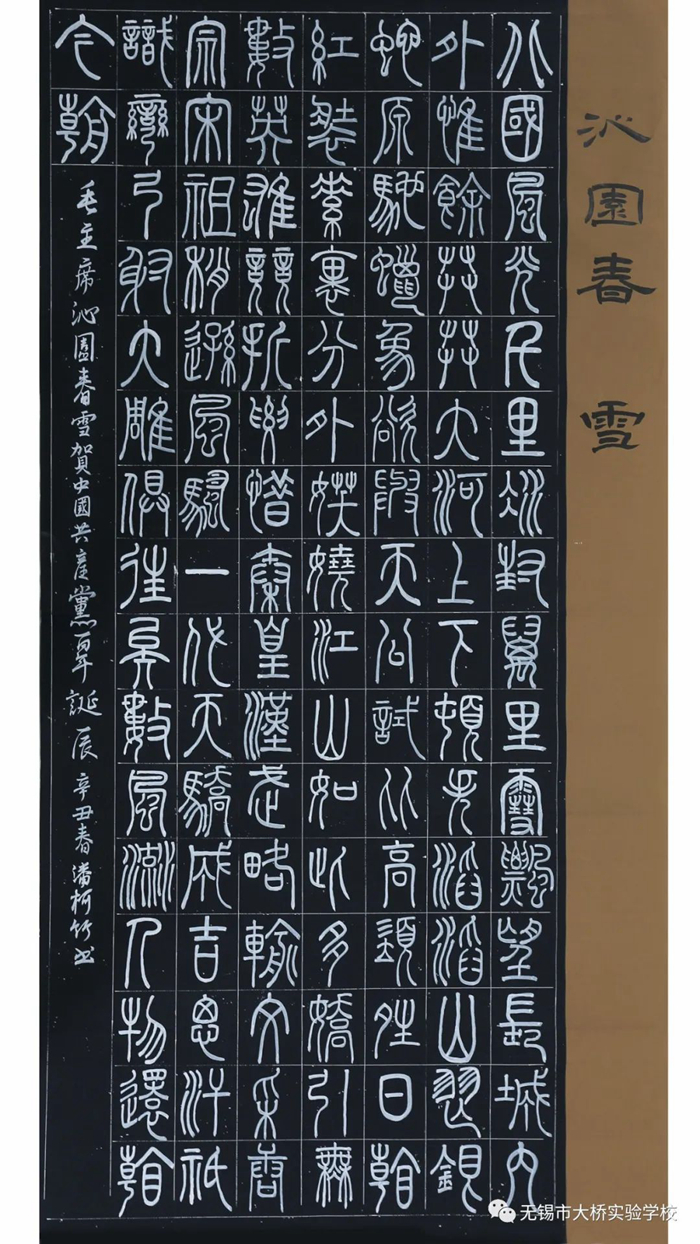 沁園春 雪
北國風光千里冰封萬里雪飄望長城內
外惟餘莽莽大河上下頓失滔滔山舞銀
蛇原馳蠟象欲與天公試比高須晴日看
紅裝素裹分外妖嬈江山如此多嬌引無
數英雄競折腰惜秦皇漢武略輸文采唐
宗宋祖稍遜風騷一代天驕成吉思汗祇
識彎弓射大雕俱往矣數風流人物還看
今朝
毛主席沁園春雪賀中國共產黨百年誕辰 辛丑春潘柯竹書
无锡市大桥实验学校